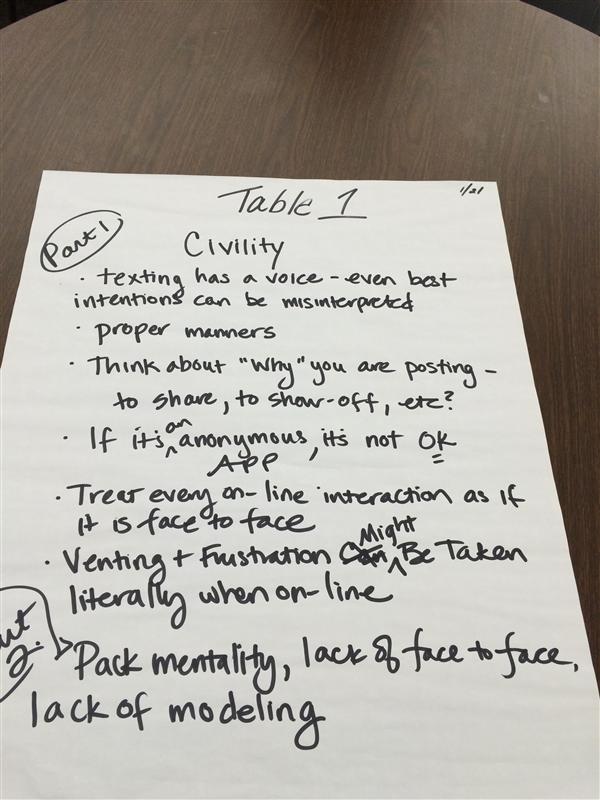 Table 1
1/21
Part 1
Civility
· texting has a voice - even best
intentions can be misinterpreted
· proper manners
· Think about "Why" you are posting -
to share, to show-off, etc?
· If it's an anonymous, it's not OK
APP
· Treat every on-line interaction as if
it is face to face
· Venting + Frustration Can Might Be Taken
literally when on-line
2.
Pack mentality, lack of face to face,
lack of modeling